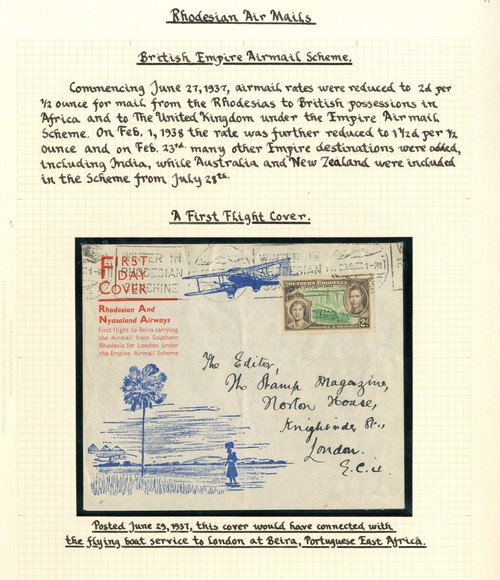 Rhodesian Air Mails
British Empire Airmail Scheme.
Commencing June 27, 1937, airmail rates were reduced to 2d per
½ ounce for mail from the Rhodesias to British possessions in
Africa and to The United Kingdom under the Empire Air mail
Scheme. On Feb. 1, 1938 the rate was further reduced to 1½d per ½
ounce and on Feb. 23rd many other Empire destinations were added,
including India, while Australia and New Zealand were included
in the Scheme from July 28th.
A First Flight Cover.
WINTER IN
RHODESIAN
SUNSHINE
FIRST
DAY
COVER
Rhodesian And
Nyasaland Airways
First flight to Beira carrying
the Airmail from Southern
Rhodesia for London under
the Empire Airmail Scheme
SOUTHERN RHODESIA
2d
The Editor,
The Stamp Magazine,
Norton House,
London.
E.C.4.
Posted June 29, 1937, this cover would have connected with
the flying boat service to London at Beira, Portuguese East Africa.